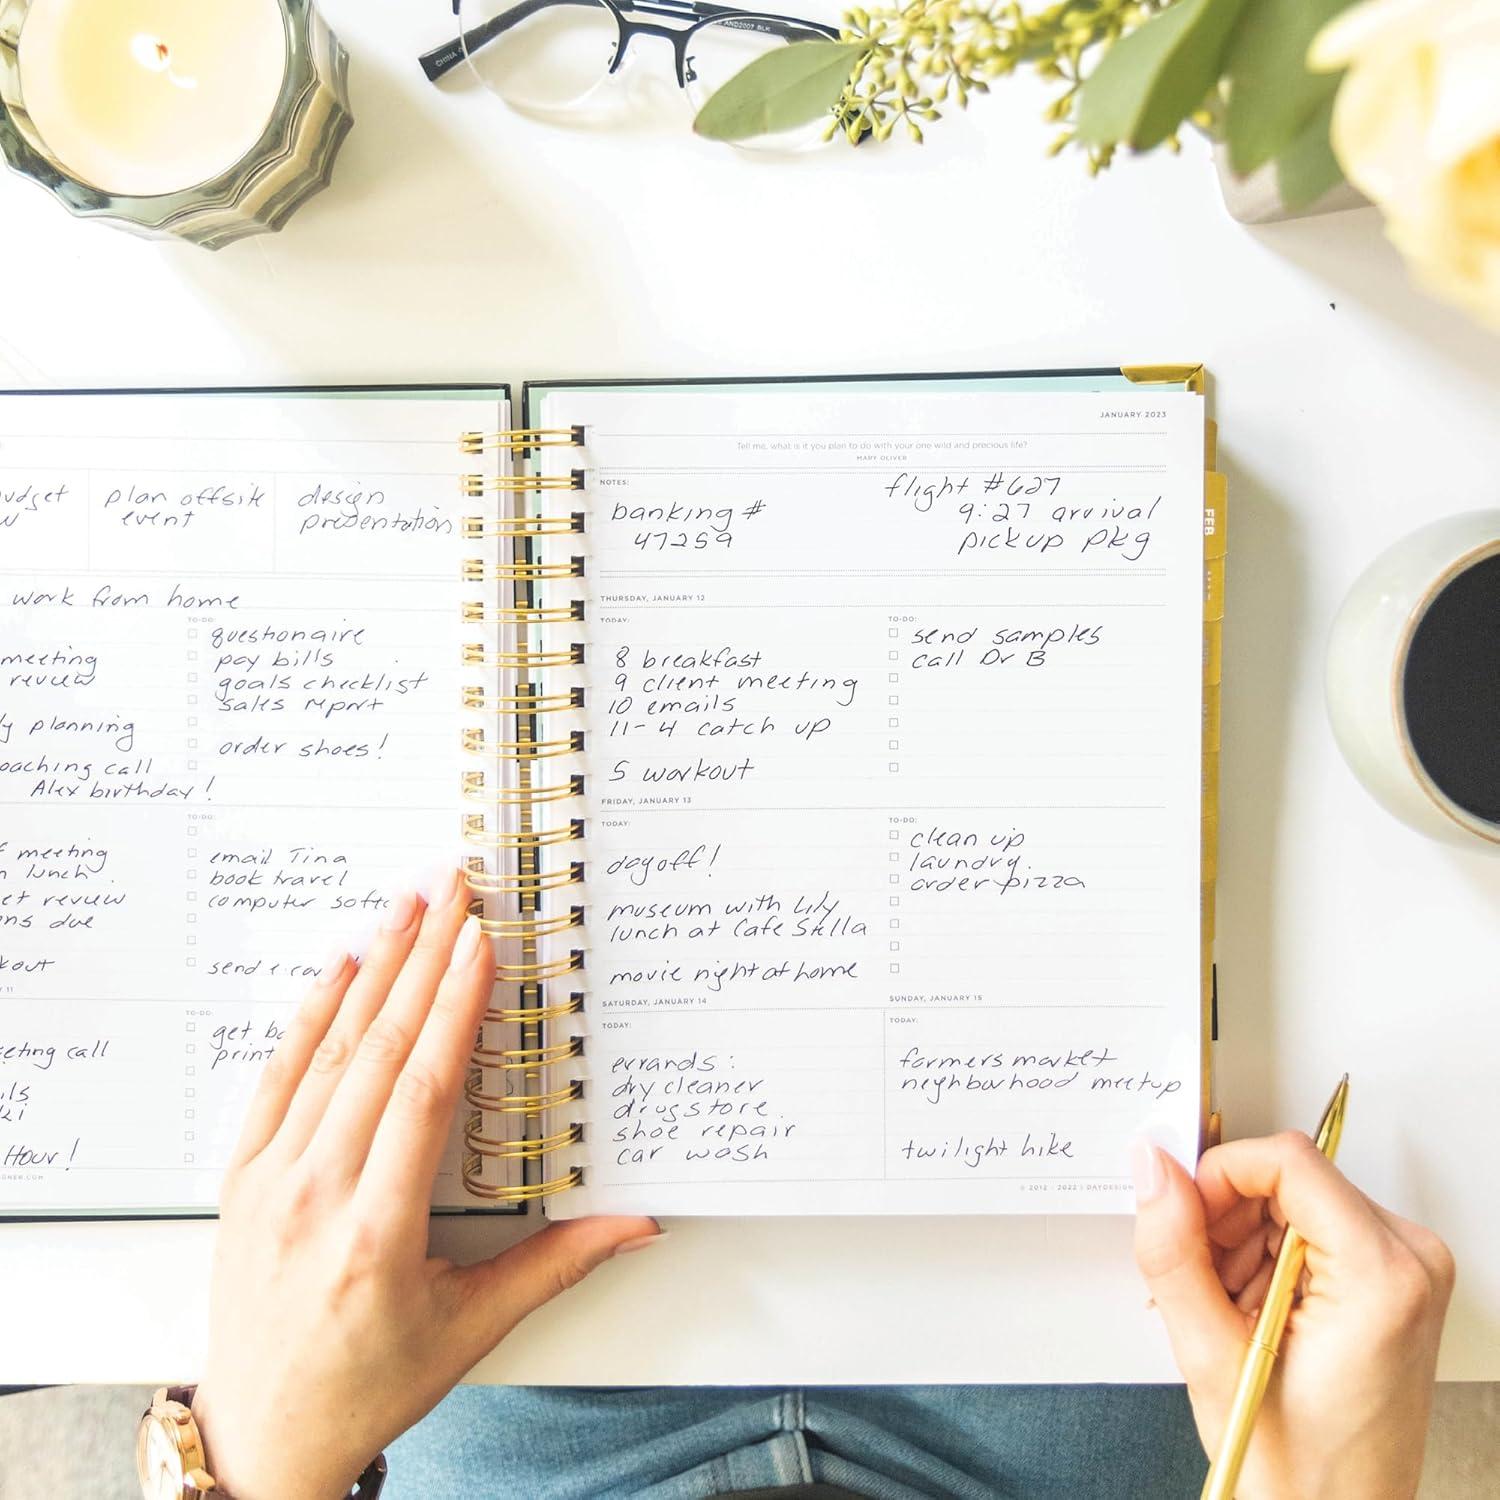 CHINA
AND2007 BLK
plan offsite
event
design
presentation
work from home
TO-DO:
questionaire
pay bills
goals checklist
sales reprt
order shoes!
meeting
review
planning
call
Alex birthday!
TO-DO:
email Tina
book travel
computer
meeting
lunch
review
due
send
11
TO-DO:
get
print
call
Hour!
JANUARY 2023
Tell me, what is it you plan to do with your one wild and precious life?
MARY OLIVER
NOTES:
banking #
47259
flight #627
9:27 arrival
pickup pkg
FEB
THURSDAY, JANUARY 12
TODAY:
8 breakfast
9 client meeting
10 emails
11-4 catch up
5 workout
TO-DO:
send samples
call Dr B
FRIDAY, JANUARY 13
TODAY:
day off!
museum with Lily
lunch at Cafe Stella
movie night at home
TO-DO:
clean up
laundry.
order pizza
SATURDAY, JANUARY 14
TODAY:
errands:
dry cleaner
drugstore.
shoe repair
car wash
SUNDAY, JANUARY 15
TODAY:
farmers market
neighborhood meetup
twilight hike
© 2012 - 2022 |